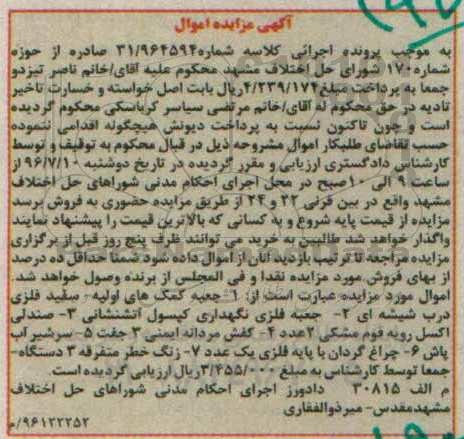 آگهی مزایده اموال
به موجب پرونده اجرائی کلاسه شماره۳۱/۹۶۴۵۹۴ صادره از حوزه
شماره۱۷۰ شورای حل اختلاف مشهد محکوم علیه آقای/خانم ناصر تیزدو
جمعا به پرداخت مبلغ۴/۲۳۹/۱۷۴ریال بابت اصل خواسته و خسارت تاخیر
تادیه در حق محکوم له آقای/خانم مرتضی سیاسر کرباسکی محکوم گردیده
است و چون تاکنون نسبت به پرداخت دیونش هیچگونه اقدامی ننموده
حسب تقاضای طلبکار اموال مشروحه ذیل در قبال محکوم به توقیف و توسط
کارشناس دادگستری ارزیابی و مقرر گردیده در تاریخ دوشنبه ۹۶/۷/۱۰ از
ساعت ۹ الی ۱۰صبح در محل اجرای احکام مدنی شوراهای حل اختلاف
مشهد واقع در بین قرنی ۲۲ و ۲۴ از طریق مزایده حضوری به فروش برسد
مزایده از قیمت پایه شروع و به کسانی که بالاترین قیمت را پیشنهاد نمایند
واگذار خواهد شد طالبین به خرید می توانند ظرف پنج روز قبل از برگزاری
مزایده مراجعه تا ترتیب بازدید آنان از اموال داده شود ضمنا حداقل ده درصد
از بهای فروش مورد مزایده نقدا و فی المجلس از برنده وصول خواهد شد.
اموال مورد مزایده عبارت است از: ۱- جعبه کمک های اولیه- سفید فلزی
درب شیشه ای ۲- جعبه فلزی نگهداری کپسول آتشنشانی ۳- صندلی
اکسل رویه فوم مشکی ۲عدد ۴- کفش مردانه ایمنی ۳ جفت ۵- سرشیر آب
پاش ۶- چراغ گردان با پایه فلزی یک عدد ۷- زنگ خطر متفرقه ۳ دستگاه-
جمعا توسط کارشناس به مبلغ ۳/۴۵۵/۰۰۰ریال ارزیابی گردیده است.
م الف ۳۰۸۱۵ دادورز اجرای احکام مدنی شوراهای حل اختلاف
مشهدمقدس- میرذوالفقاری
۹۶۱۲۲۲۵۲/م